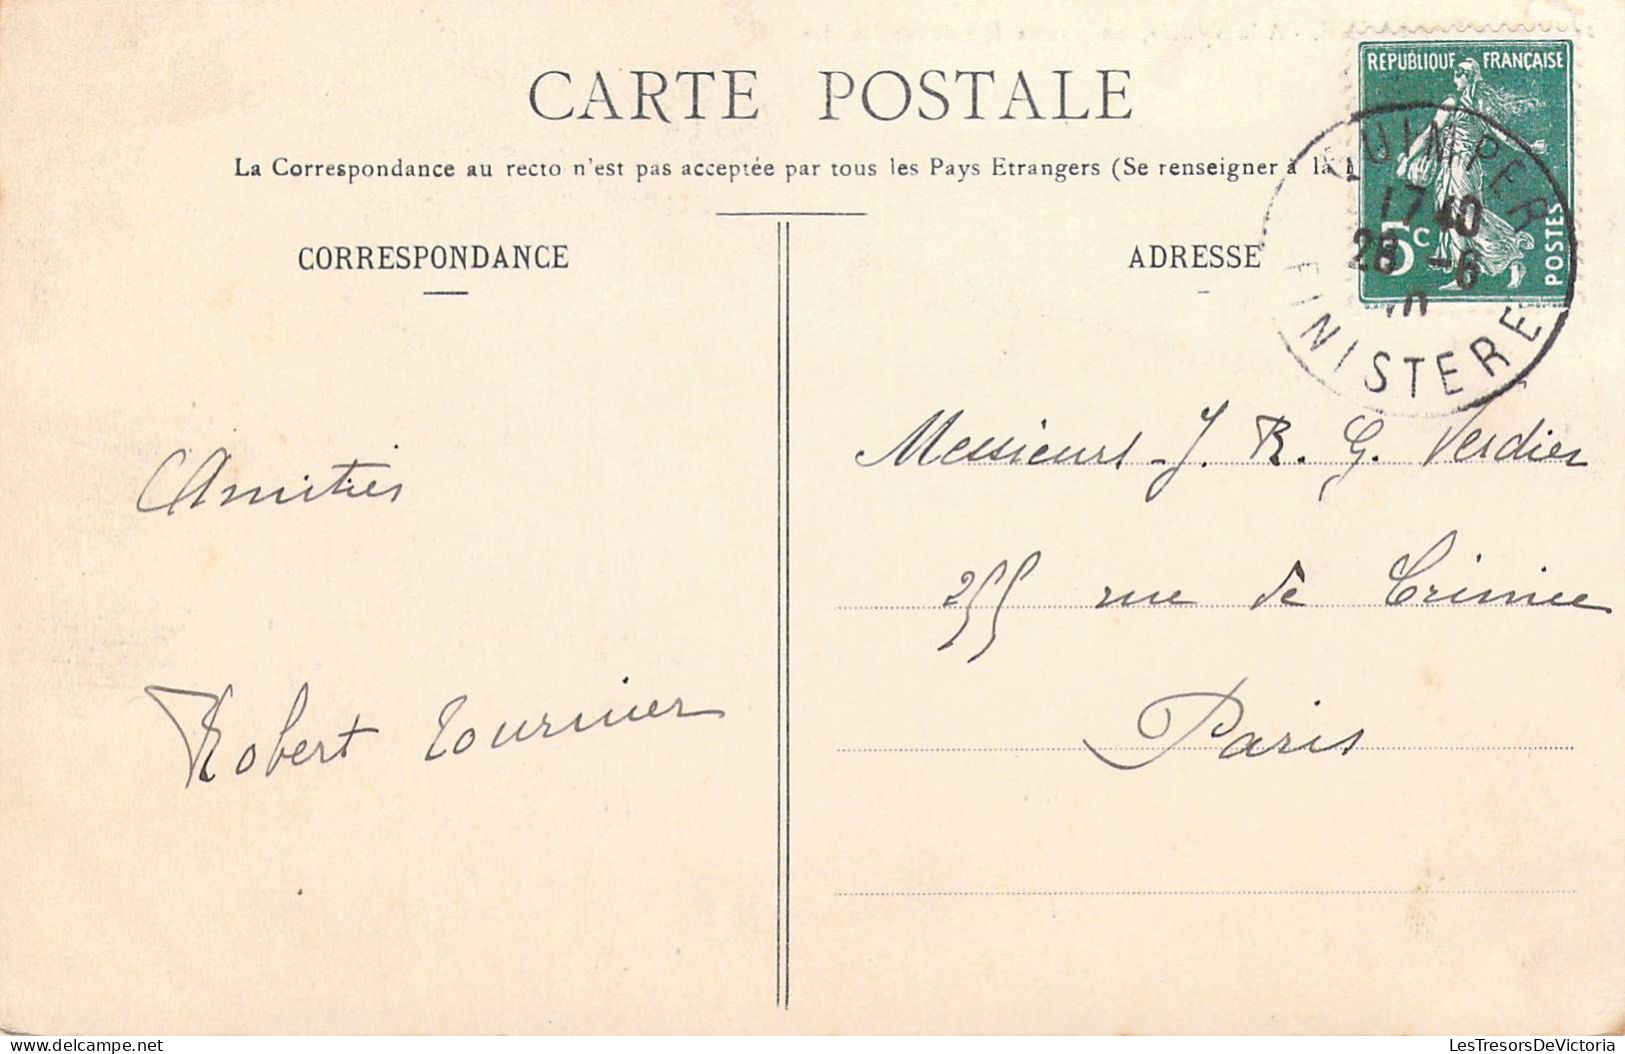 CARTE POSTALE
La Correspondance au recto n'est pas acceptée par tous les Pays Etrangers (Se renseigner à la
CORRESPONDANCE
ADRESSE
REPUBLIQUE FRANÇAISE
5c
POSTES
QUIMPER
17 40
28 -6
10
FINISTERE
Amitiés
Robert Tournier
Messieurs J. R. G. Verdier
255 rue de Crimée
Paris
delcampe.net
LesTresorsDeVictoria